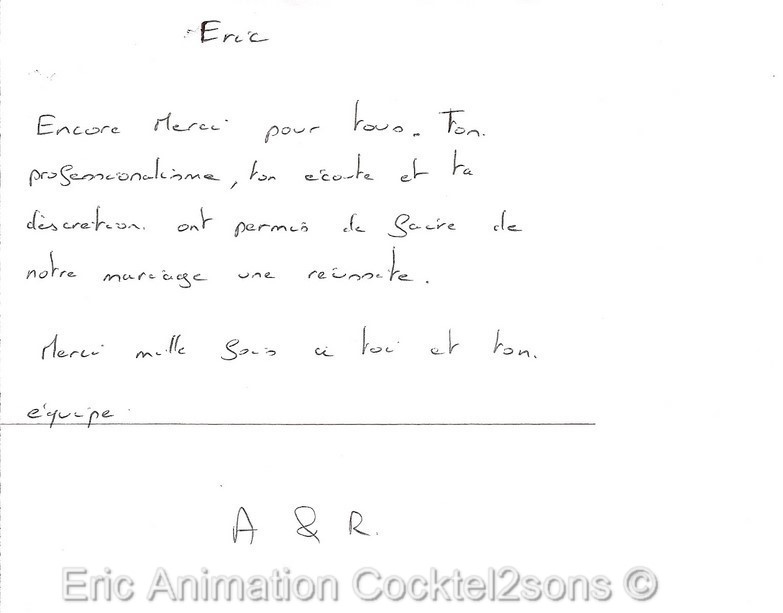 Eric
Encore Merci pour tous. Ton
professionalisme, ton écoute et ta
discretion. ont permis de faire de
notre mariage une réussite.
Merci mille fois à toi et ton.
équipe.
A & R.
Eric Animation Cocktel2sons ©